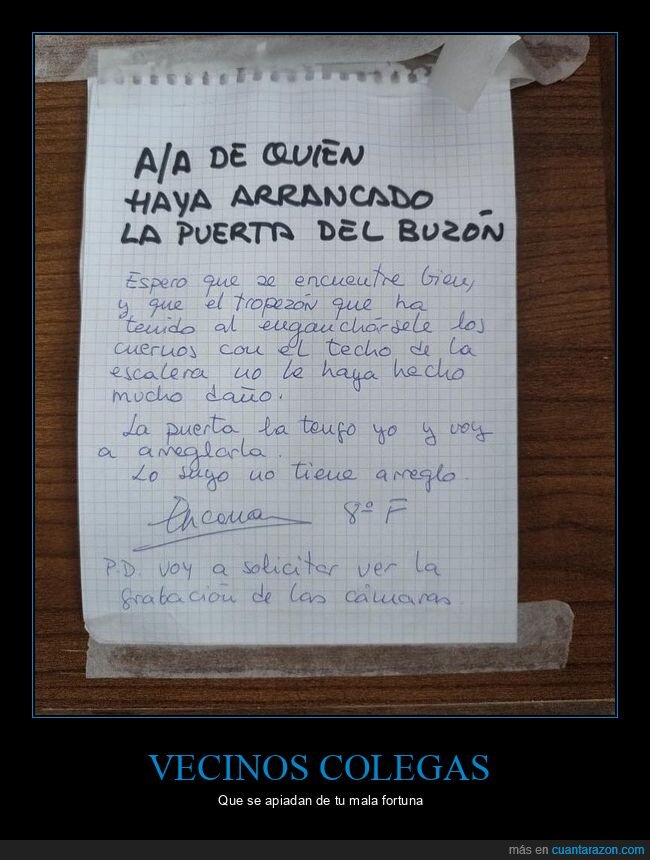 A/A DE QUIÉN
HAYA ARRANCADO
LA PUERTA DEL BUZÓN
Espero que se encuentre bien,
y que el tropezón que ha
tenido al enganchársele los
cuernos con el techo de la
escalera no le haya hecho
mucho daño.
La puerta la tengo yo y voy
a arreglarla.
Lo suyo no tiene arreglo.
Encarna 8º F
P.D. voy a solicitar ver la
grabación de las cámaras.
VECINOS COLEGAS
Que se apiadan de tu mala fortuna
más en cuantarazon.com